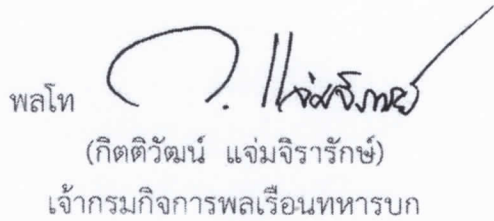 พลโท
(กิตติวัฒน์ แจ่มจิรารักษ์)
เจ้ากรมกิจการพลเรือนทหารบก